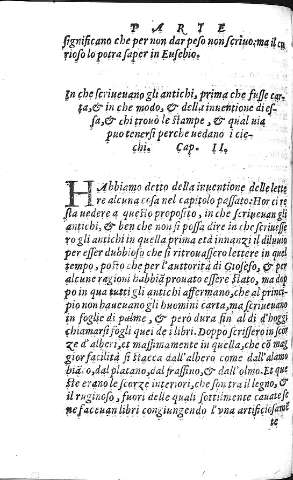 PARTE
significano che per non dar peso non scrivo; ma il cu
rioso lo potra saper in Eusebio.
In che scriuevano gli antichi, prima che fusse car
ta, & in che modo, & della inuentione di es
sa, & chi trovò le stampe, & qual uia
puo tenersi perche uedano i cie
chi. Cap. II.
HAbbiamo detto della inuentione delle lette
re alcuna cosa nel capitolo passato: Hor ci re
sta uedere a questo proposito, in che scriueuan gli
antichi, & ben che non si possa dire in che scriuesse
ro gli antichi in quella prima età innanzi il diluuio
per esser dubbioso che si ritrouassero lettere in quel
tempo, posto che per l'auttorità di Giosefo, & per
alcune ragioni habbiā prouato essere stato, ma dop
po in qua tutti gli antichi affermano, che al princi
pio non haueuano gli huomini carta, ma scriueuano
in foglie di palme, & però dura fin' al dì d'hoggi
chiamarsi fogli quei de i libri. Doppo scrissero in scor
ze d'alberi, et massimamente in quella, che cō mag
gior facilità si stacca dall'albero come dall'alamo
biāco, dal platano, dal frassino, & dall'olmo. Et que
ste erano le scorze interiori, che son tra il legno, &
il ruginoso, fuori delle quali sottilmente cauate se
ne faceuan libri congiungendo l'una artificiosamē
te